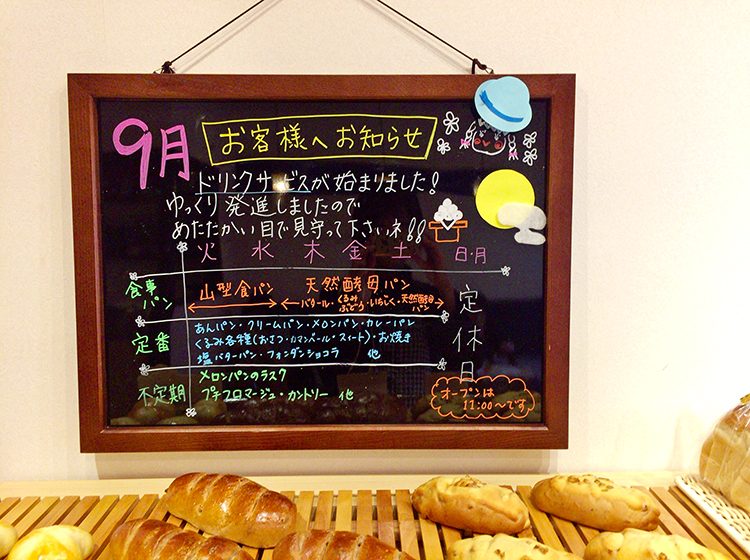 9月
お客様へお知らせ
ドリンクサービスが始まりました!
ゆっくり発進しましたので
あたたかい目で見守って下さいネ!!
火 水 木 金 土 日・月
食事パン
山型食パン 天然酵母パン
バタール・くるみぶどう・いちじく・天然酵母パン
定番
あんパン・クリームパン・メロンパン・カレーパン
くるみ各種(おさつ・リマンベール・スィート)・お焼き
塩バターパン・フォンダンショコラ 他
不定期
メロンパンのラスク
プチフロマージュ・カントリー 他
定休日
オープンは
11:00〜です